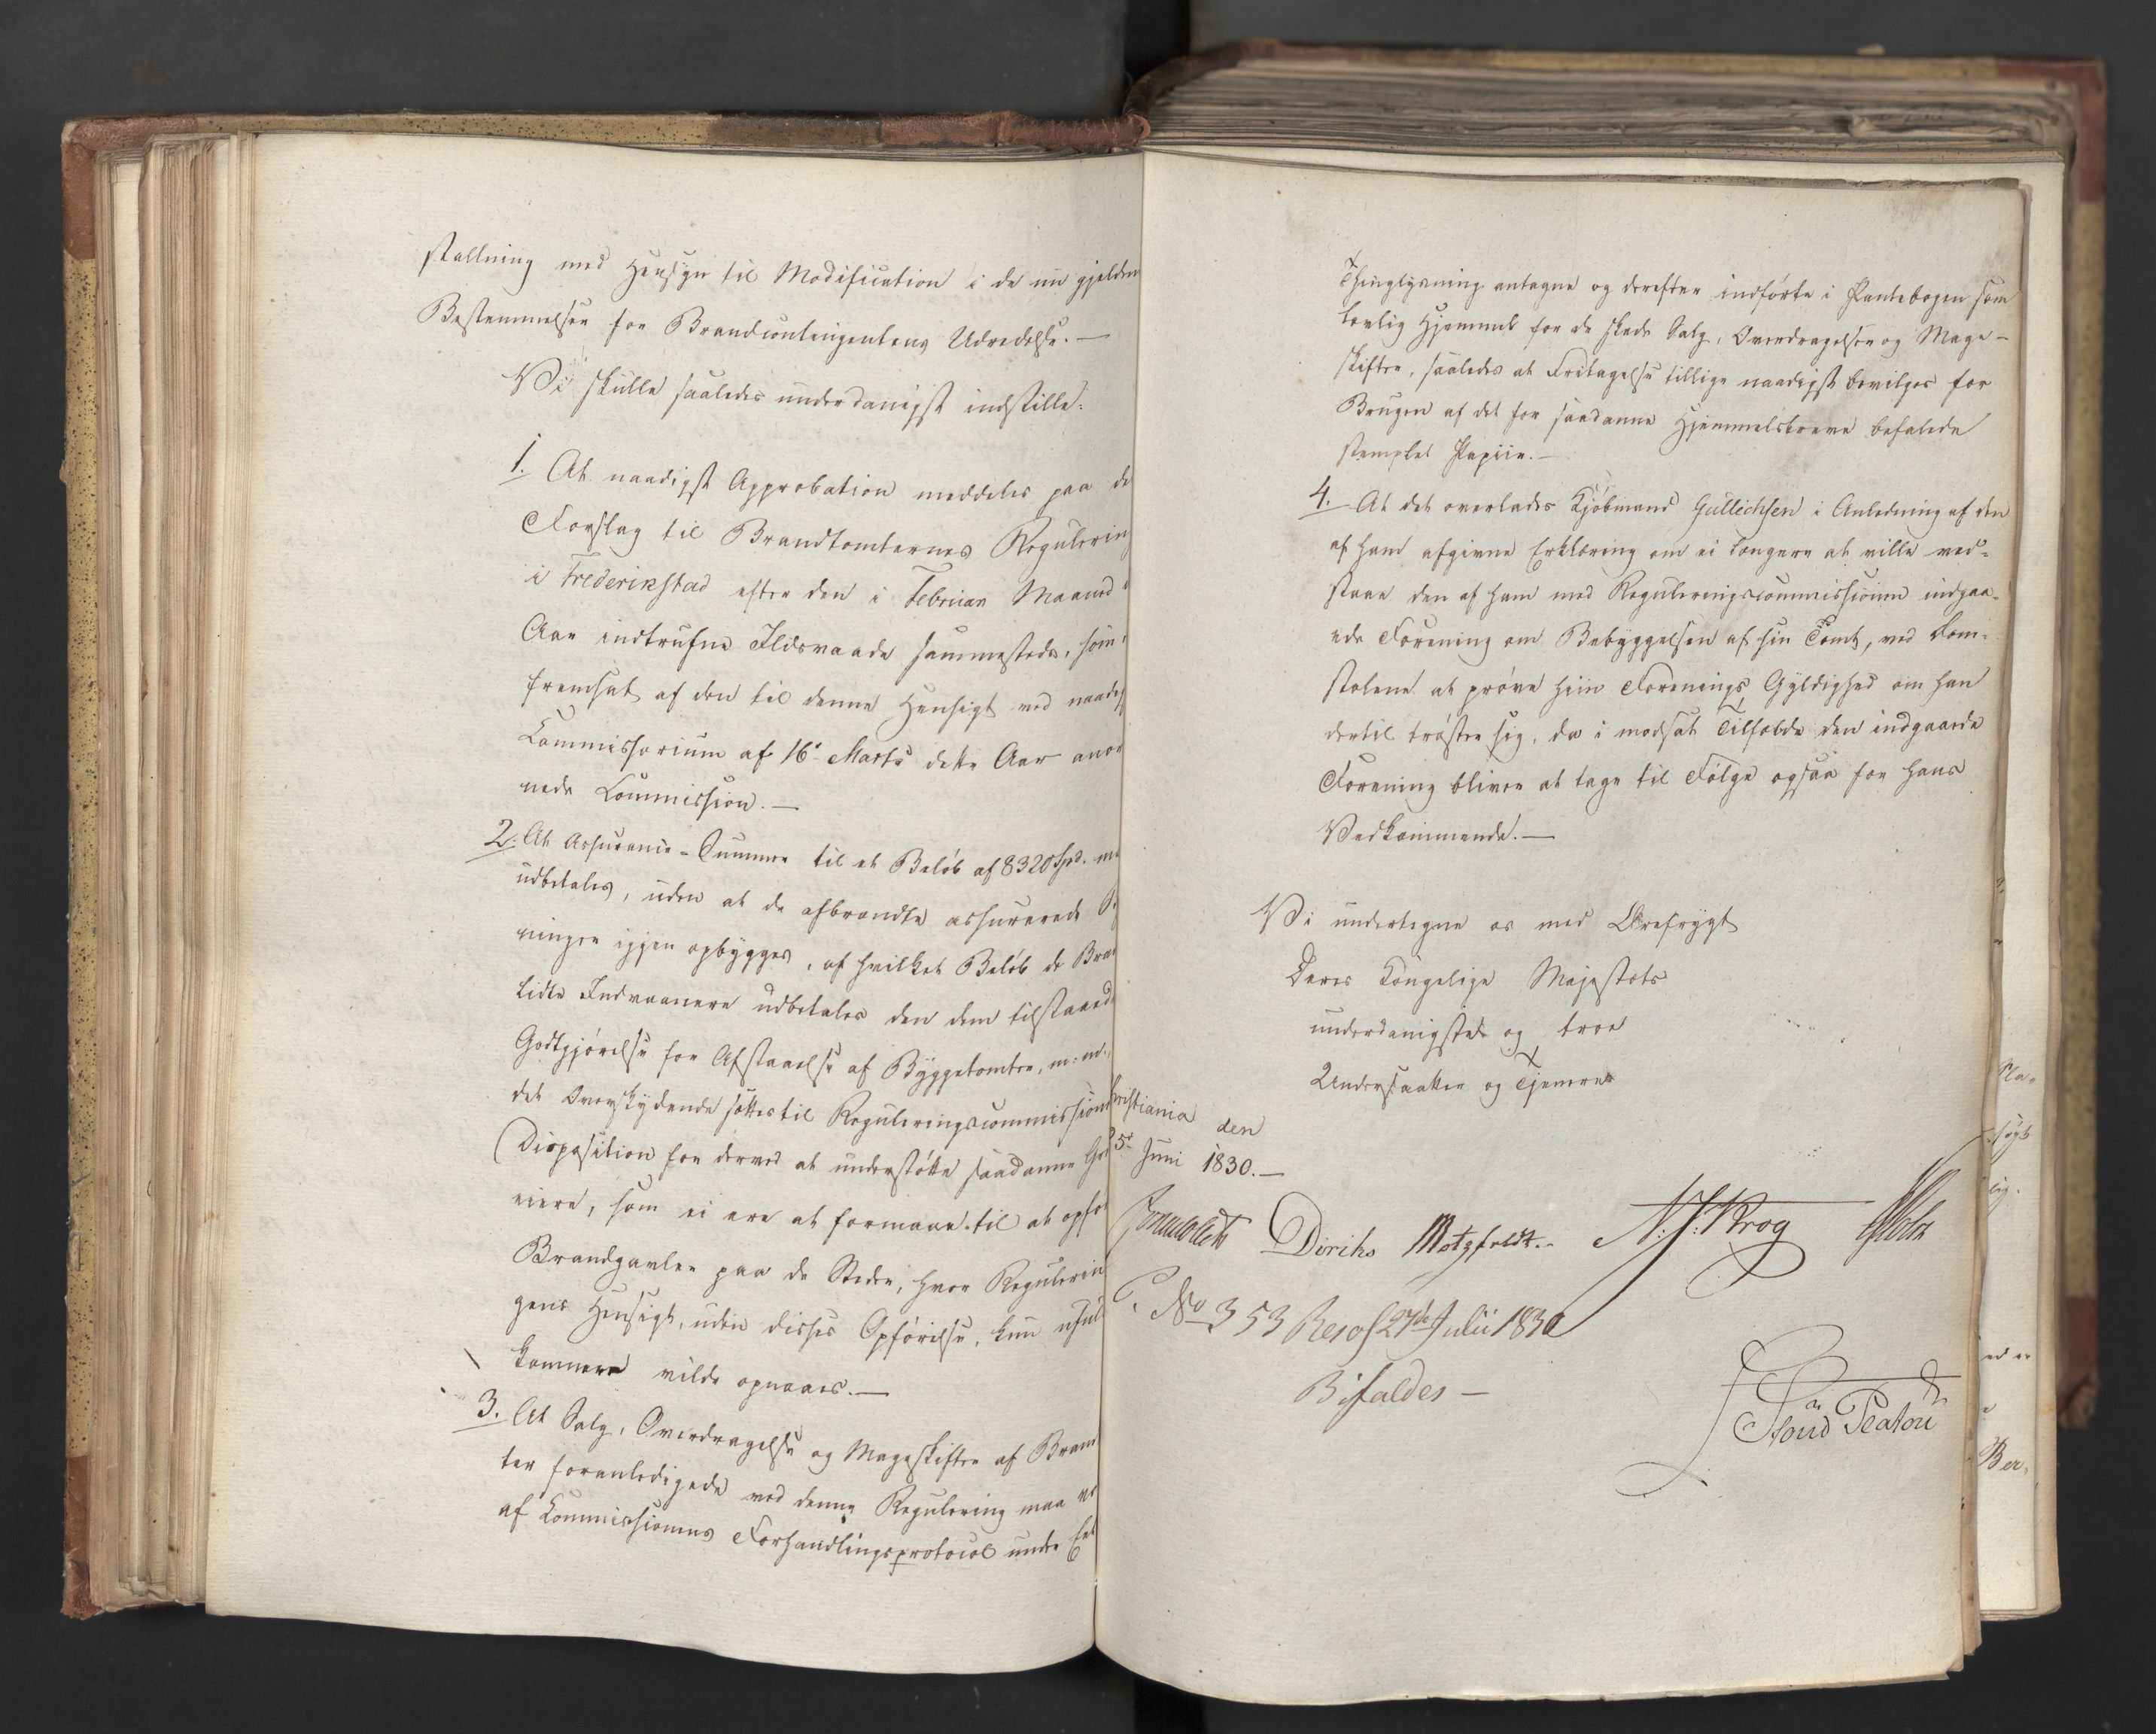 stallning med Hensyn til Modification i de nu gjelden
Bestemmelser for Brandcontingentens Udredelse.—
Vi skulle saaledes underdanigst indstille:
1. At naadigst Approbation meddeles paa de
Forslag til Brandtomternes Regulering
i Frederikstad efter den i Februar Maaned
Aar indtrufne Ildsvaade sammesteds, som
fremsat af den til denne Hensigt ved naadigs
Commissorium af 16de Marts dette Aar anor
nede Commission.—
2. At Assurance-Summer til et Beløb af 8320 Spd. m
udbetales, uden at de afbrændte assurerede B
ninger igjen opbygges, af hvilket Beløb de Bran
lidte Indvaanere udbetales den dem tilstaaed
Godtgjørelse for Afstaaelse af Byggetomter, m: m.,
det Overskydende sættes til Reguleringscommissionen
Disposition for derved at understøtte saadanne Gaa
eiere, som ei ere at formaae til at opfø
Brandgavler paa de Steder, hvor Regulerin
gens Hensigt, uden disses Opførelse, kun uful
komment vilde opnaaes.—
3. At Salg, Overdragelse og Mageskifter af Bran
ter foranledigede ved denne Regulering maa ve
af Commissionens Forhandlingsprotocol under Eet
Thinglysning antagne og derefter indførte i Pantebogen som
lovlig Hjemmel for de skede Salg, Overdragelser og Mage-
skifter, saaledes at Fritagelse tillige naadigst bevilges for
Brugen af det for saadanne Hjemmelsbreve befalede
stemplet Papiir.—
4. At det overlades Kjøbmand Gullichsen i Anledning af den
af ham afgivne Erklæring om ei længere at ville ved-
staae den af ham med Reguleringscommissionen indgaa-
ede Forening om Bebyggelsen af sin Tomt, ved Dom-
stolene at prøve hiin Forenings Gyldighed om han
dertil trøster sig, da i modsat Tilfælde den indgaaede
Forening bliver at tage til Følge ogsaa for hans
Vedkommende.—
Vi undertegne os med Ærefrygt
Deres Kongelige Majestæts
underdanigste og troe
Undersaatter og Tjenere
hristiania den
5te Juni 1830.—
Diriks Motzfeldt.- N. J. Krog
No 353 Resol 27de Julii 1830
Bifaldes —